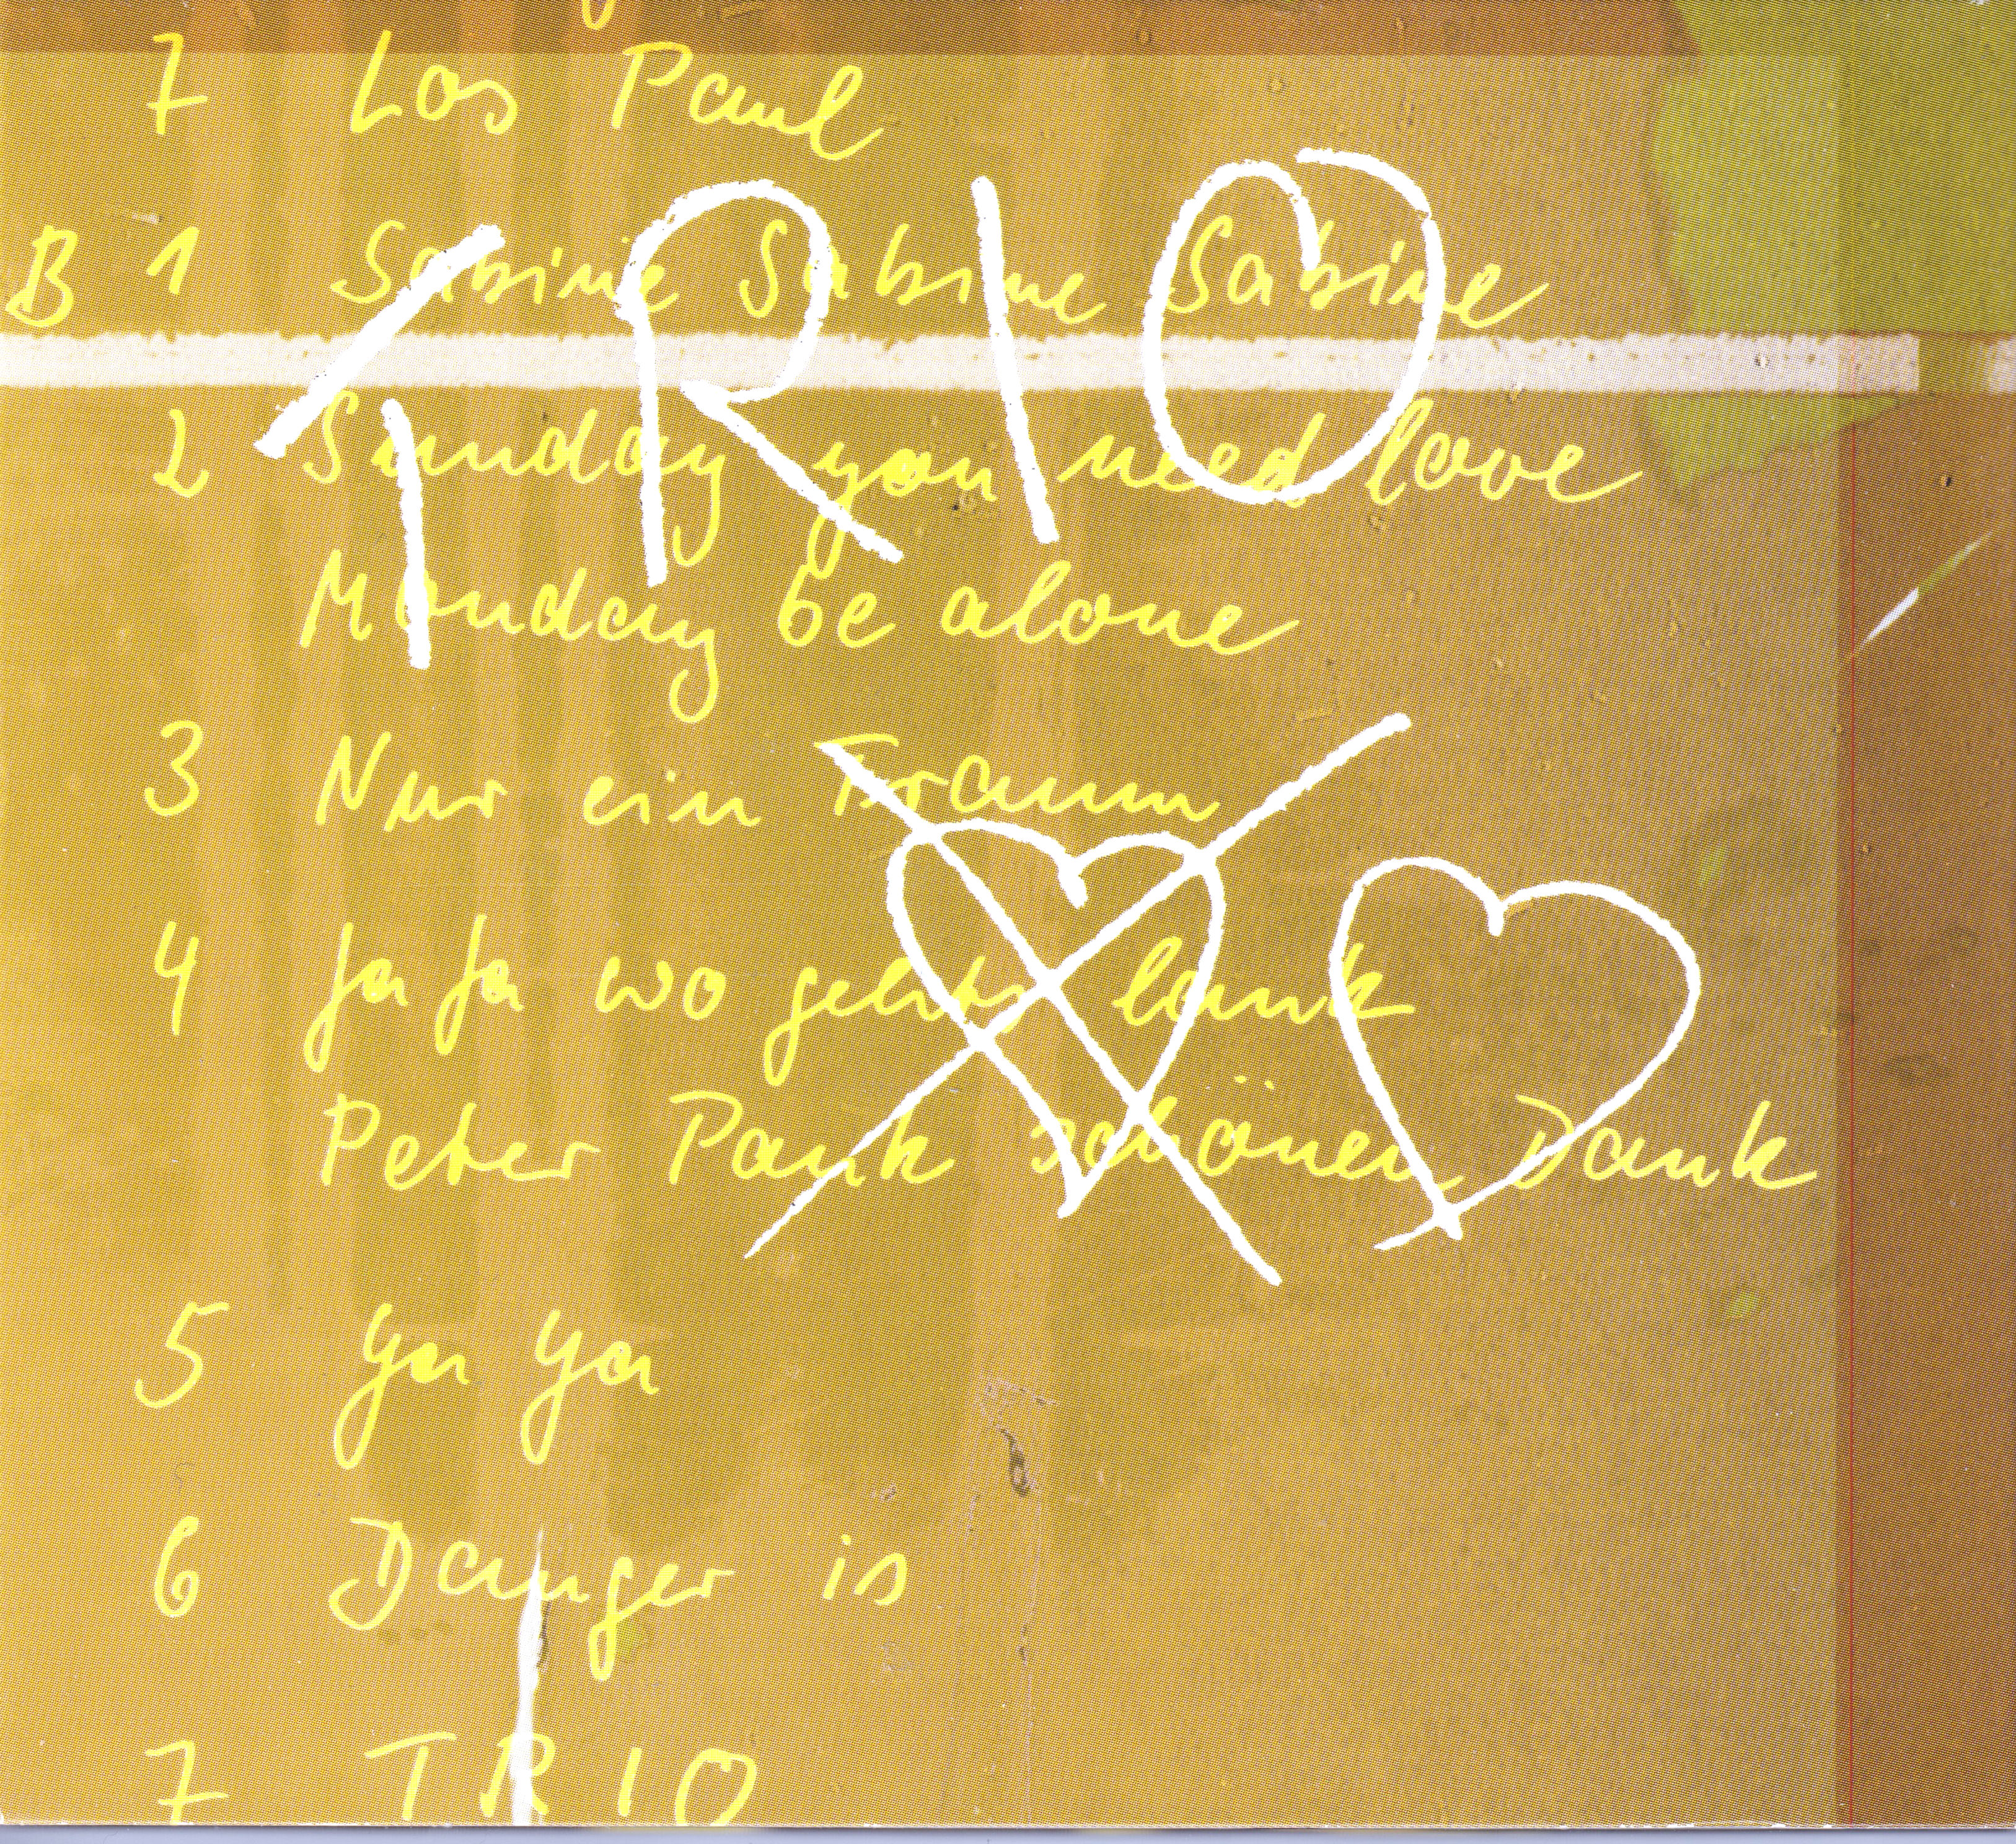 7 Los Paul
TRIO
B 1 Sabine Sabine Sabine
2 Sunday you need love
Monday be alone
3 Nur ein Traum
4 Ja Ja wo gehts lank
Peter Pank schönen Dank
5 Ya Ya
6 Danger is
7 TRIO